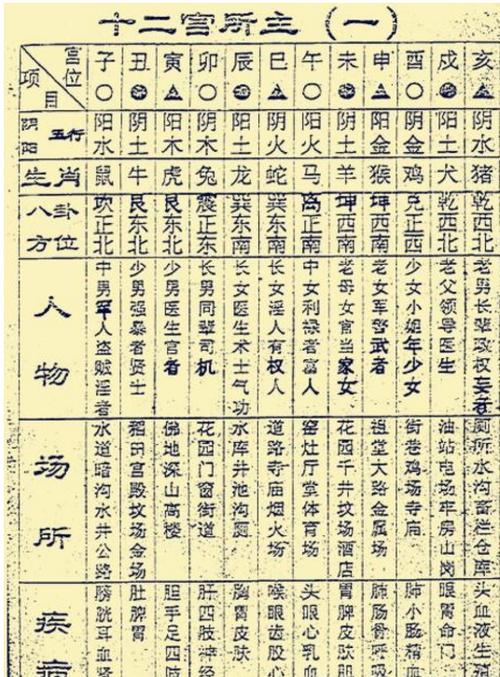 十二宫所主（一）
宫位 子 丑 寅 卯 辰 巳 午 未 申 酉 戌 亥
项目
阴阳五行 阳水 阴土 阳木 阴木 阳土 阴火 阳火 阴土 阳金 阴金 阳土 阴水
生肖 鼠 牛 虎 兔 龙 蛇 马 羊 猴 鸡 犬 猪
八卦方位 坎正北 艮东北 艮东北 震正东 巽东南 巽东南 离正南 坤西南 坤西南 兑正西 乾西北 乾西北
人物
中男军人盗贼淫者
少男强暴者贤士
少男医生官者
长男同辈司机
长女医生术士气功
长女淫人有权人
中女利禄者富人
老母女官当家女
老女军警武者
少女小姐年少女
老父领导医生
老男长辈政权妄者
场所
水道暗沟水井公路
稻田宫殿坟场会场
佛地深山高楼
花园门窗街道
水库井池沟厕
道路寺庙烟火场
窑灶厅堂体育场
花园干井坟场酒店
祖堂大路金属场
街巷鸡场寺庙
油站电场牢房山岗
厕所水沟畜栏仓库
疾病
膀胱耳血肾
肚脾胃
胆手足四肢
肝四肢神经
胸胃皮肤
喉眼齿股心
头眼心乳血
胃脾皮肤胆
肺肠骨呼吸
肺小肠精血
眼胃命门
头血液生殖